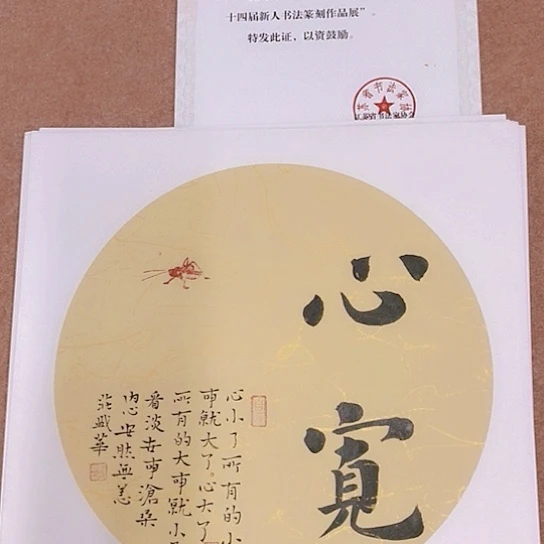 十四届新人书法篆刻作品展”。
特发此证，以资鼓励。
心寬
心小了所有的小
事就大了。心大了
所有的大事就小
看淡世事滄桑
内心安然無恙